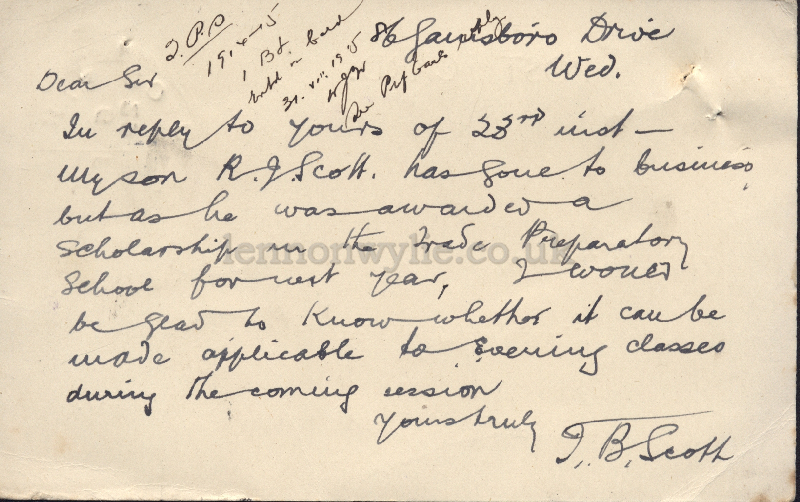 T.P.S
1914-15
31. VIII. 1915
86 Gainsboro Drive
Wed.
Dear Sir
In reply to yours of 23rd inst —
My son R. J. Scott. has gone to business,
but as he was awarded a
Scholarship in the Trade Preparatory
School for next year, I would
be glad to know whether it can be
made applicable to Evening classes
during the coming session
Yours truly
T. B. Scott
lennonwylie.co.uk